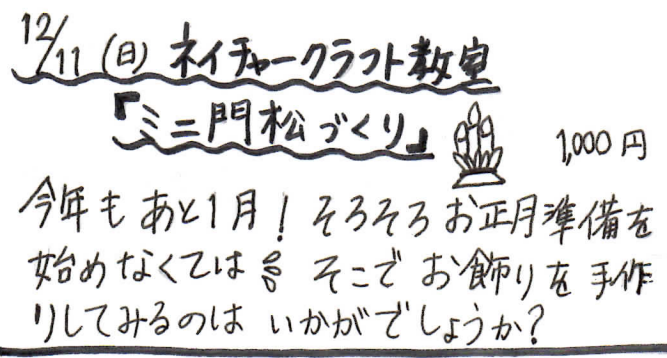 12/11(日) ネイチャークラフト教室
『ミニ門松づくり』 1,000円
今年もあと1月! そろそろお正月準備を
始めなくては そこでお飾りを手作
りしてみるのはいかがでしょうか?